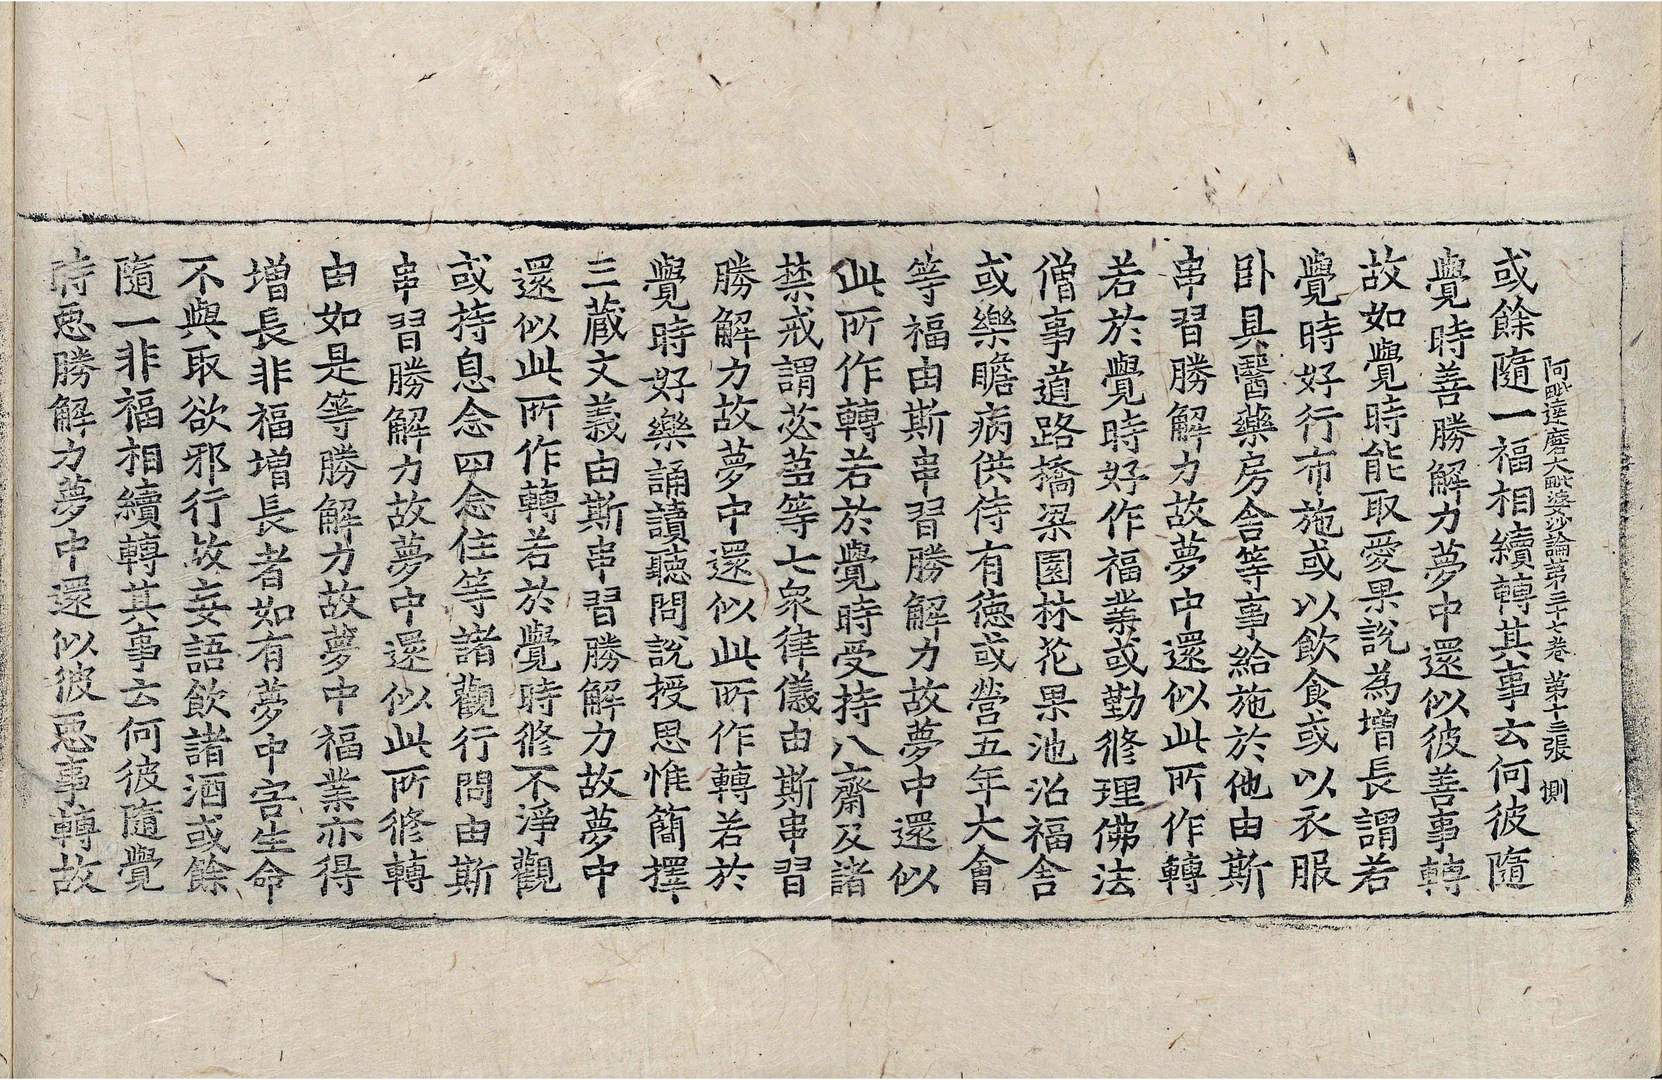 阿毗達磨大毗婆沙論第三十七卷 第十三張 惻
或餘隨一福相續轉其事云何彼隨
覺時善勝解力夢中還似彼善事轉
故如覺時能取愛果說為增長謂若
覺時好行布施或以飲食或以衣服
卧具醫藥房舍等事給施於他由斯
串習勝解力故夢中還似此所作轉
若於覺時好作福業或勤修理佛法
僧事道路橋梁園林花果池沼福舍
或樂瞻病供侍有德或營五年大會
等福由斯串習勝解力故夢中還似
此所作轉若於覺時受持八齋及諸
禁戒謂苾芻等七衆律儀由斯串習
勝解力故夢中還似此所作轉若於
覺時好樂誦讀聽問說授思惟簡擇
三藏文義由斯串習勝解力故夢中
還似此所作轉若於覺時修不淨觀
或持息念四念住等諸觀行門由斯
串習勝解力故夢中還似此所修轉
由如是等勝解力故夢中福業亦得
增長非福增長者如有夢中害生命
不與取欲邪行故妄語飲諸酒或餘
隨一非福相續轉其事云何彼隨覺
時惡勝解力夢中還似彼惡事轉故